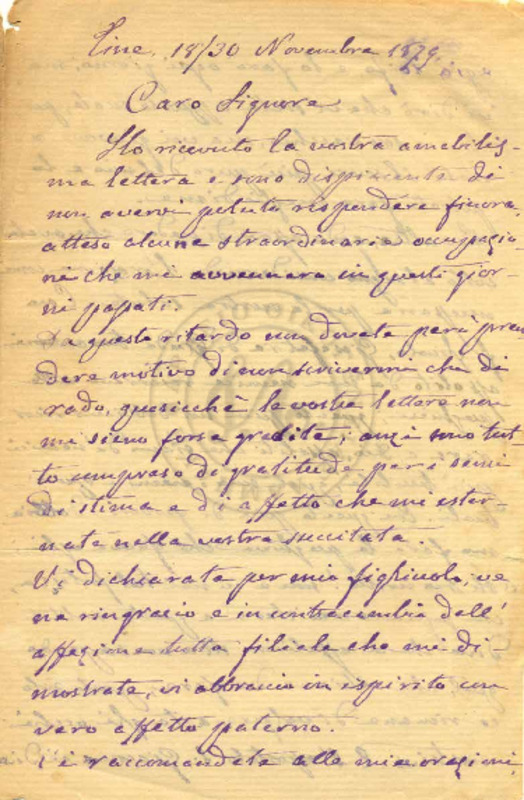 Tine, 18/30 Novembra 1879.
Caro Signore
Ho ricevuto la vostra amabilis-
ma lettera e sono dispiacente di
non avervi potuto rispondere finora,
atteso alcune straordinarie occupazio-
ni che mi avvennara in questi gior-
ni papati.
Da questo ritardo non dovete però pren
dere motivo di non scrivermi che di
rado, quasicchè le vostre lettere non
mi sieno forse gradite; anzi sono tut-
to compreso di gratitude per i semi
di stima e di affetto che mi ester-
nate nella vostra succitata.
Vi dichiarate per mio figliuolo, ve
ne ringrazio e in contracambio dell'
affezione tutta filiale che mi di-
mostrate, vi abbraccio in ispirito con
vero affetto paterno.
Vi raccomandate alle mie orazioni,